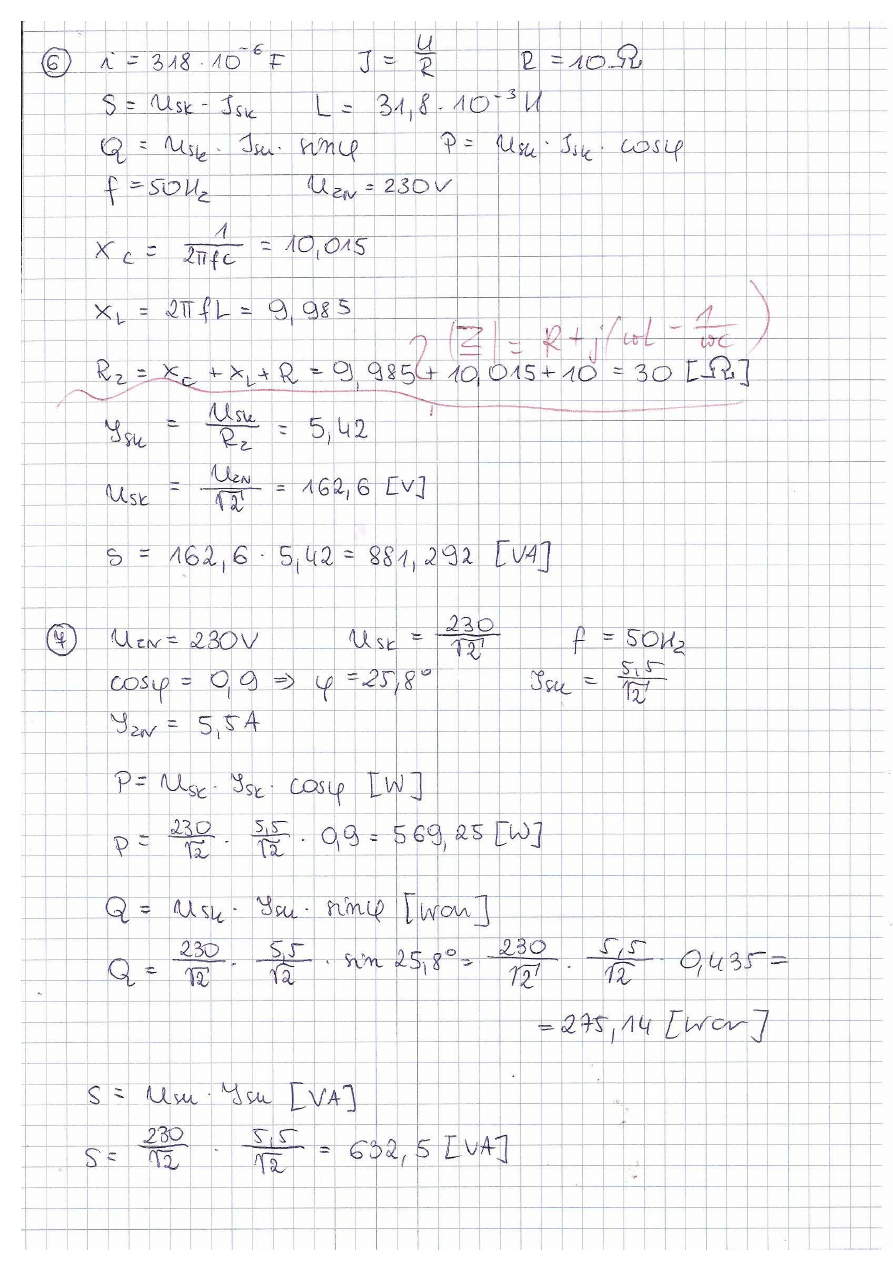 ⑥ i = 318 · 10⁻⁶ F J = U/R R = 10 Ω
S = Usk - Jsk L = 31,8 · 10⁻³ H
Q = Usk · Jsk · sinφ P = Usk · Jsk · cosφ
f = 50Hz UZN = 230V
XC = 1/2πfC = 10,015
XL = 2πfL = 9,985
|Z| = R + j(ωL - 1/ωC)
RZ = XC + XL + R = 9,985 + 10,015 + 10 = 30 [Ω]
Jsk = Usk/RZ = 5,42
Usk = UZN/√2 = 162,6 [V]
S = 162,6 · 5,42 = 881,292 [VA]
⑦ UZN = 230V Usk = 230/√2 f = 50Hz
cosφ = 0,9 ⇒ φ = 25,8° Jsk = 5,5/√2
JZN = 5,5A
P = Usk · Jsk · cosφ [W]
P = 230/√2 · 5,5/√2 · 0,9 = 569,25 [W]
Q = Usk · Jsk · sinφ [War]
Q = 230/√2 · 5,5/√2 · sin 25,8° = 230/√2 · 5,5/√2 · 0,435 =
= 275,14 [War]
S = Usk · Jsk [VA]
S = 230/√2 · 5,5/√2 = 632,5 [VA]